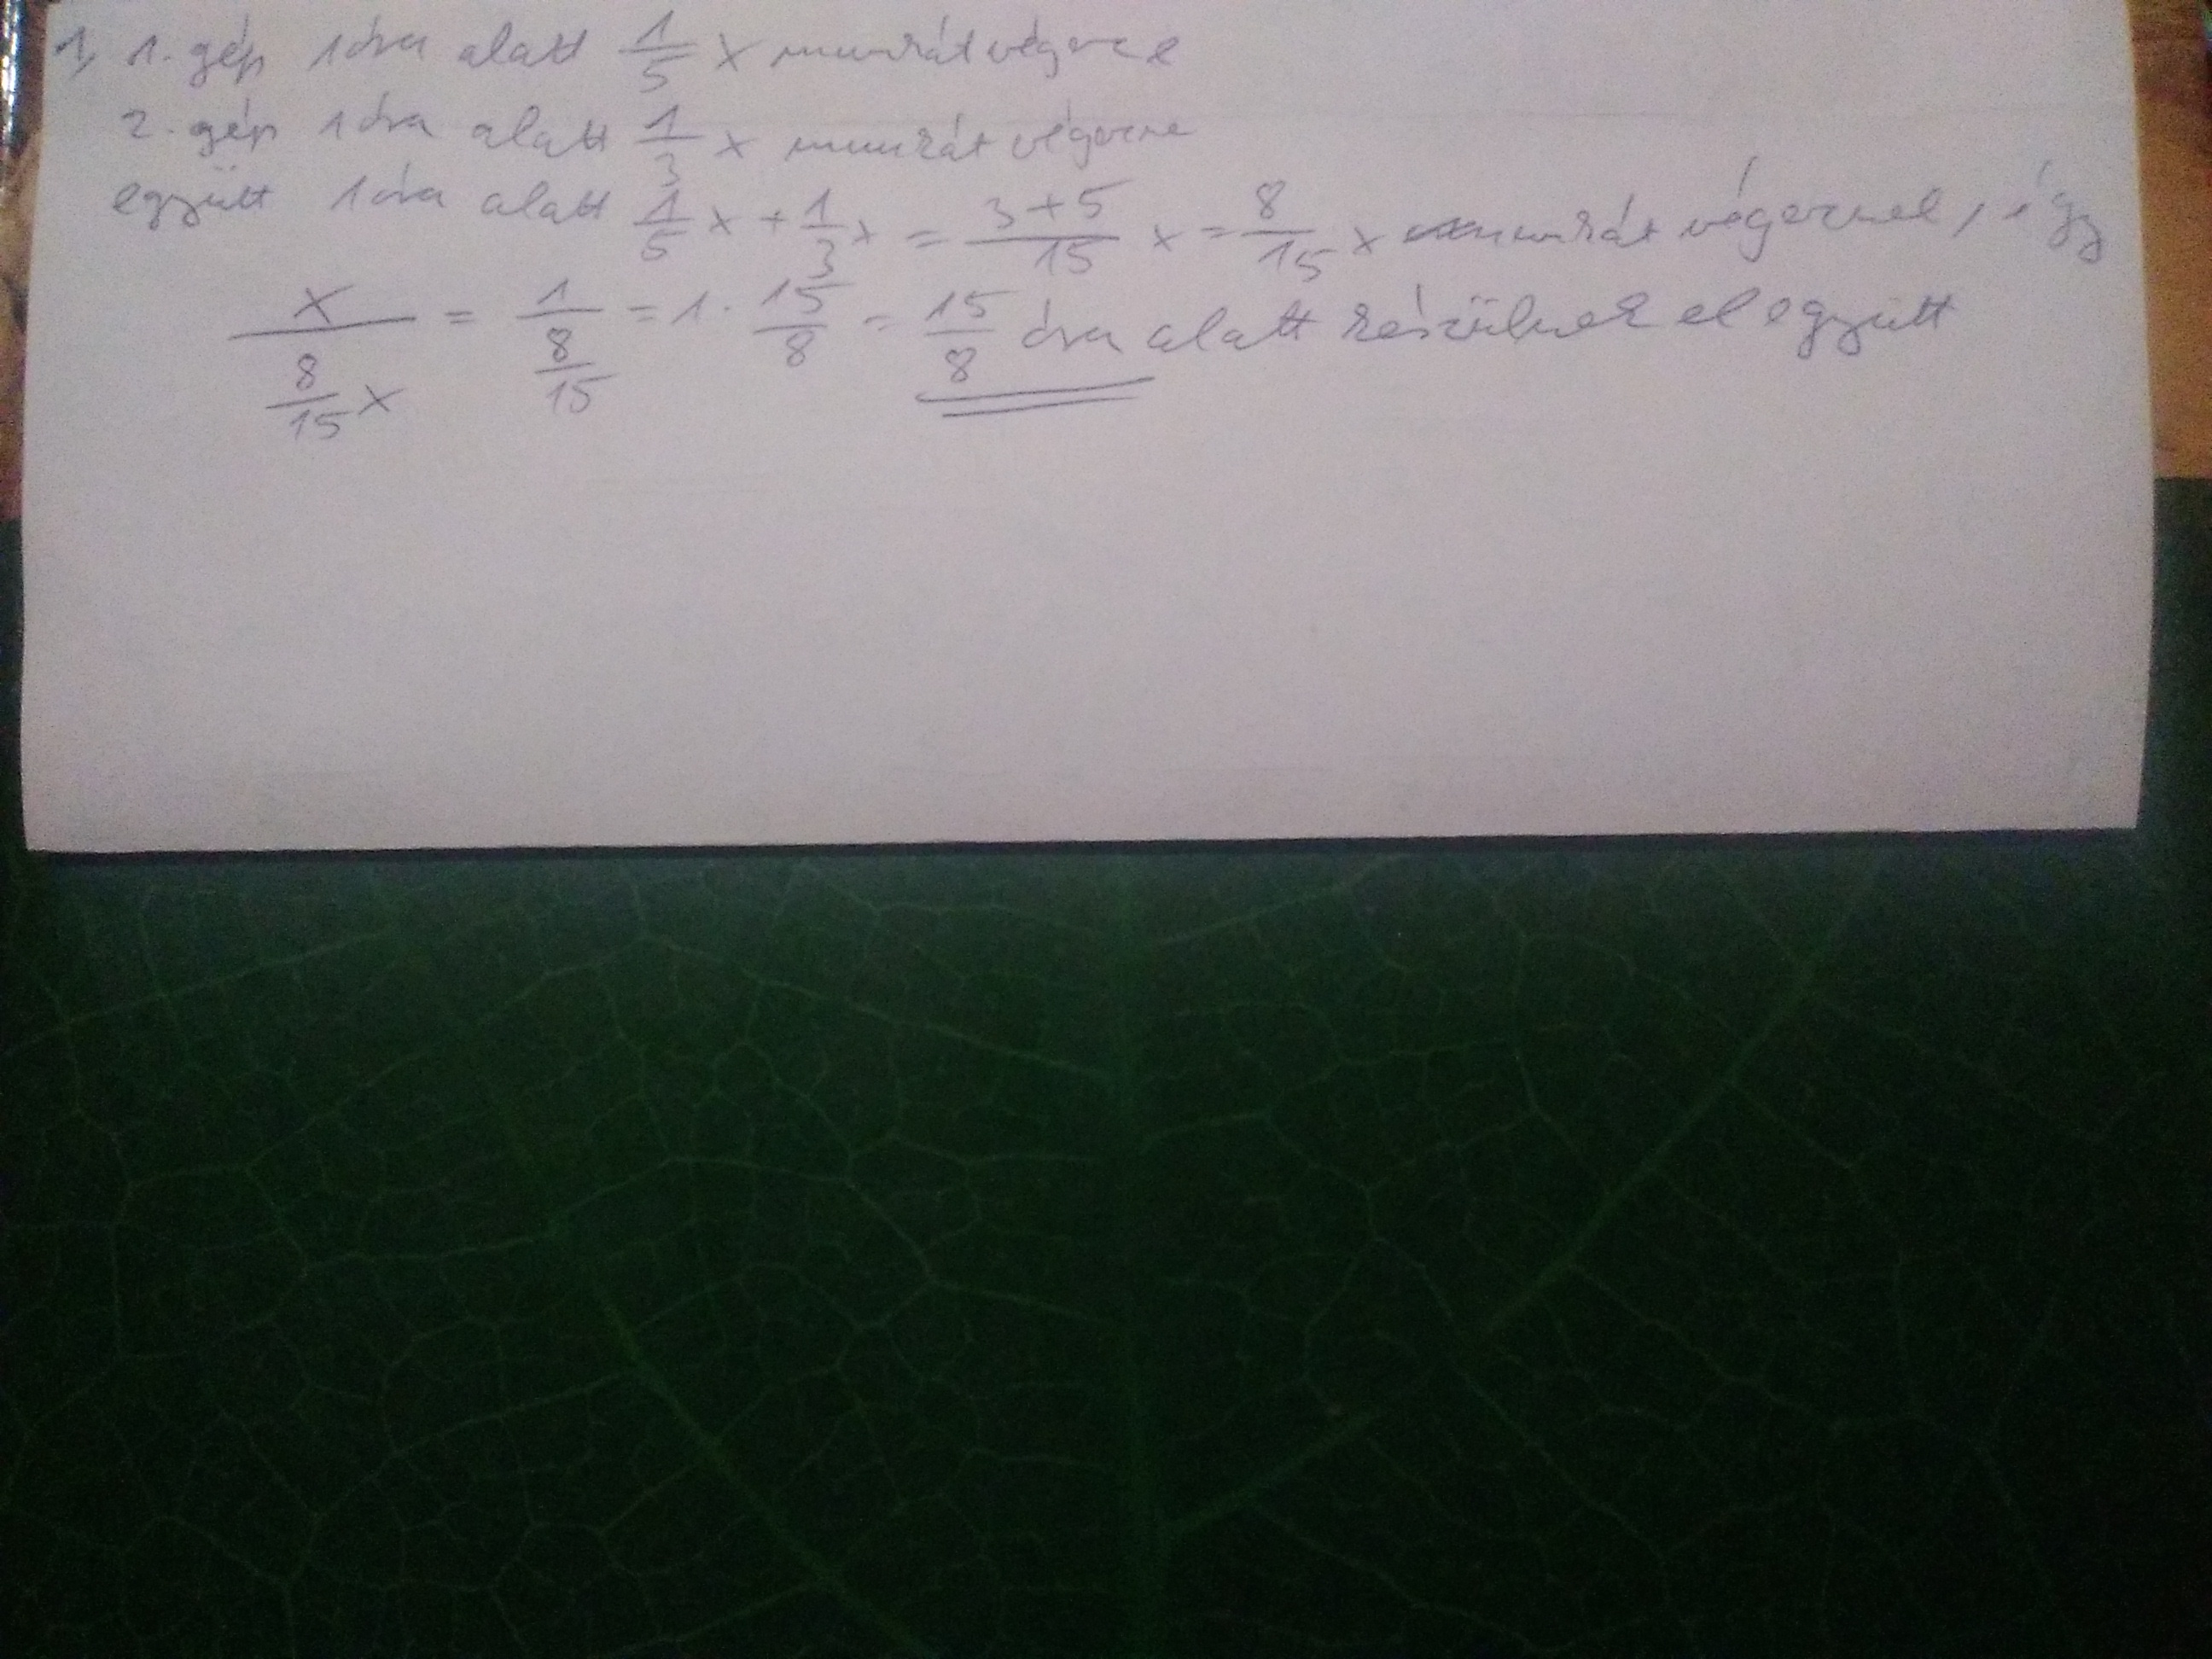 1, 1. gép 1 óra alatt 1/5 x munkát végez el
2. gép 1 óra alatt 1/3 x munkát végezne
együtt 1 óra alatt 1/5 x + 1/3 x = 3+5/15 x = 8/15 x munkát végeznek, így
x / 8/15 x = 1 / 8/15 = 1 · 15/8 = 15/8 óra alatt készülnek el együtt